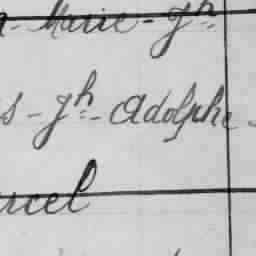 - Marie - Jh
s - Jh - Adolphe -
rcel